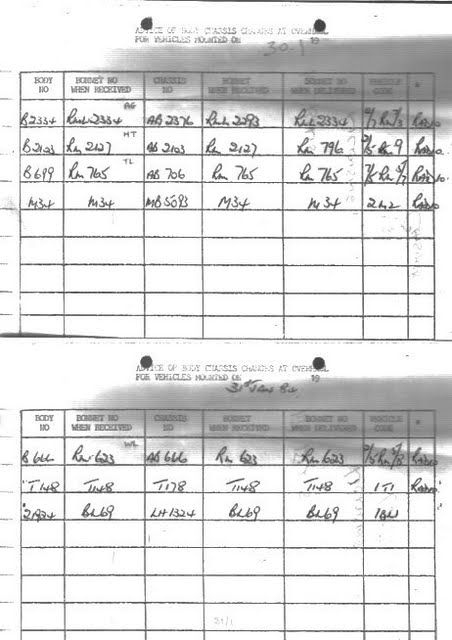 ADVICE OF BODY CHASSIS CHANGES AT OVERHAUL
FOR VEHICLES MOUNTED ON 30.1 19
BODY NO BONNET NO WHEN RECEIVED CHASSIS NO BONNET WHEN RECEIVED BONNET NO WHEN DELIVERED VEHICLE CODE
AG
B2334 RML 2334 AB 2376 RML 2293 RML 2334 RADIO
HT
B2103 RM 2127 AB 2103 RM 2127 RM 796 RADIO
TL
B699 RM 765 AB 706 RM 765 RM 765 RADIO
M34 M34 MB5093 M34 M34 2M2 RADIO
ADVICE OF BODY CHASSIS CHANGES AT OVERHAUL
FOR VEHICLES MOUNTED ON 19
31st JAN 84
BODY NO BONNET NO WHEN RECEIVED CHASSIS NO BONNET WHEN RECEIVED BONNET NO WHEN DELIVERED VEHICLE CODE
WL
B666 RM 623 AB 666 RM 623 RM 623 RADIO
T148 T148 T178 T148 T148 1T1 RADIO
BL69 LH1324 BL69 BL69 1BL